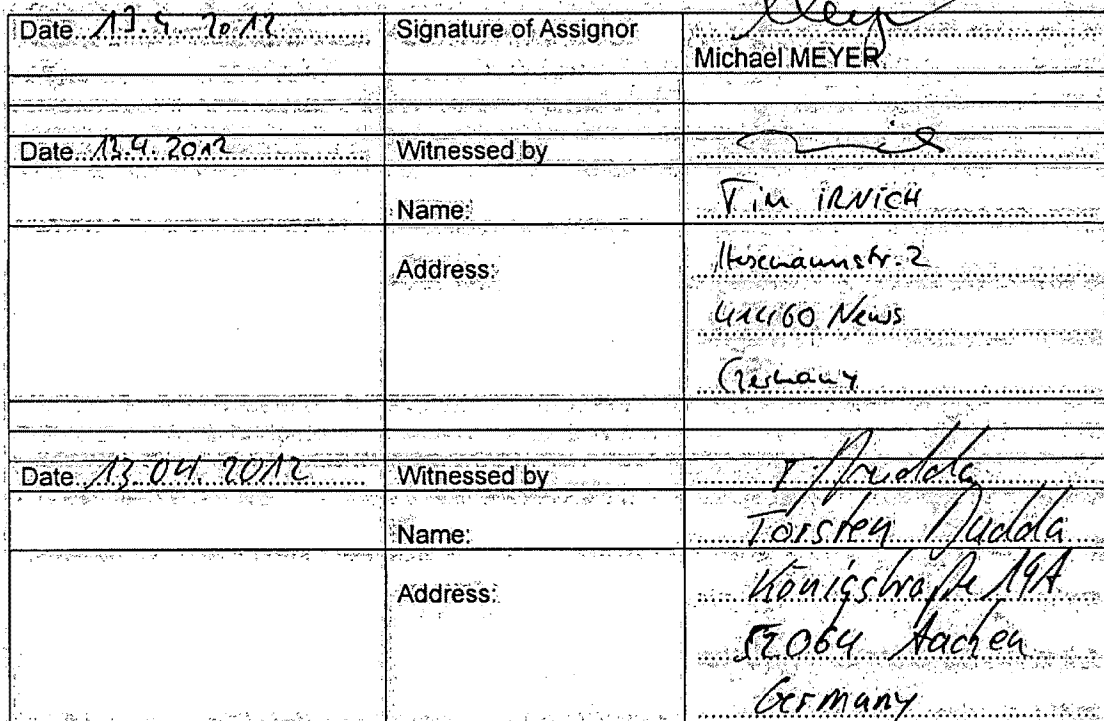 Date 13.4.2012 Signature of Assignor
Michael MEYER
Date 13.4.2012 Witnessed by
Name: Tim IRNICH
Address:
41460 Neuss
Germany
Date 13.04.2012 Witnessed by T Dudda
Name: Torsten Dudda
Address: Königstraße 19A
52064 Aachen
Germany